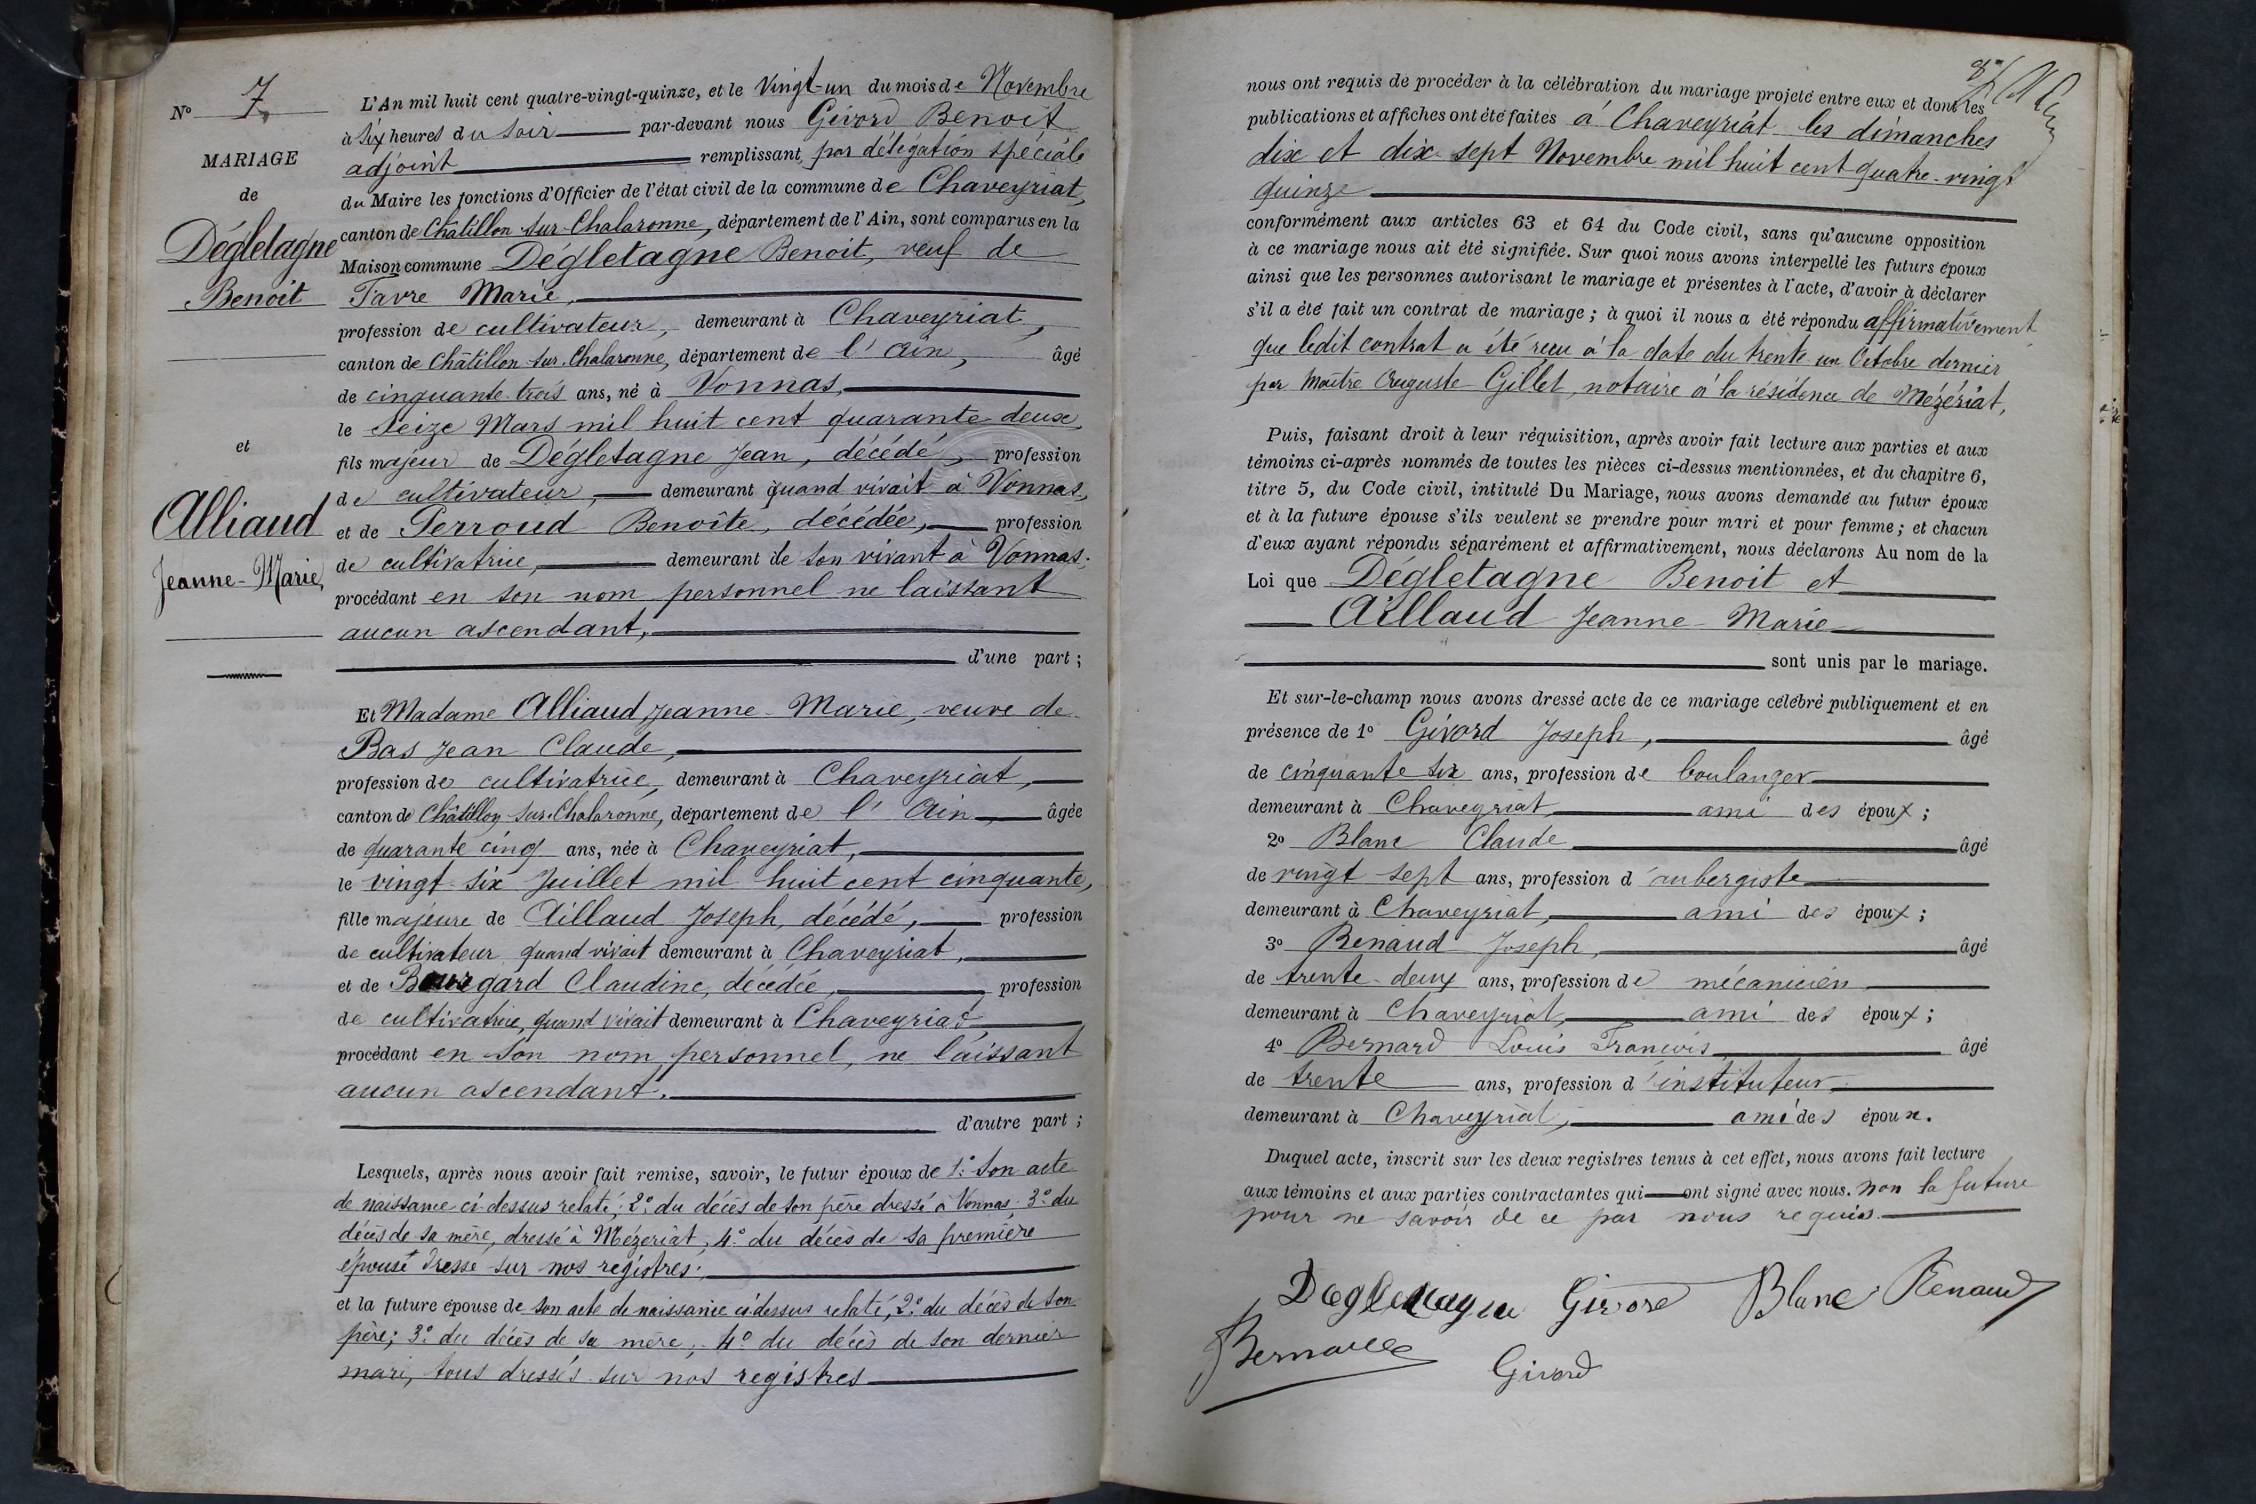 N° 7
MARIAGE
de
Dégletagne
Benoit
et
Alliaud
Jeanne-Marie
L'An mil huit cent quatre-vingt-quinze, et le Vingt-un du mois de Novembre
à six heures du soir par-devant nous Givord Benoit
adjoint remplissant par délégation spéciale
du Maire les fonctions d'Officier de l'état civil de la commune de Chaveyriat,
canton de Châtillon-sur-Chalaronne, département de l'Ain, sont comparus en la
Maison commune Dégletagne Benoit, veuf de
Favre Marie,
profession de cultivateur, demeurant à Chaveyriat,
canton de Châtillon-sur-Chalaronne, département de l'Ain, âgé
de cinquante-trois ans, né à Vonnas,
le Seize Mars mil huit cent quarante-deux,
fils majeur de Dégletagne Jean, décédé, profession
de cultivateur, demeurant quand vivait à Vonnas,
et de Perroud Benoîte, décédée, profession
de cultivatrice, demeurant de son vivant à Vonnas;
procédant en son nom personnel ne laissant
aucun ascendant,
d'une part;
Et Madame Alliaud Jeanne-Marie, veuve de
Bas Jean Claude,
profession de cultivatrice, demeurant à Chaveyriat,
canton de Châtillon-sur-Chalaronne, département de l'Ain, âgée
de quarante cinq ans, née à Chaveyriat,
le vingt-six Juillet mil huit cent cinquante,
fille majeure de Aillaud Joseph, décédé, profession
de cultivateur quand vivait demeurant à Chaveyriat,
et de Bouregard Claudine, décédée, profession
de cultivatrice, quand vivait demeurant à Chaveyriat,
procédant en son nom personnel, ne laissant
aucun ascendant.
d'autre part;
Lesquels, après nous avoir fait remise, savoir, le futur époux de 1° son acte
de naissance ci-dessus relaté; 2° du décès de son père dressé à Vonnas; 3° du
décès de sa mère, dressé à Mézeriat; 4° du décès de sa première
épouse dressé sur nos registres;
et la future épouse de son acte de naissance ci-dessus relaté; 2° du décès de son
père; 3° du décès de sa mère; 4° du décès de son dernier
mari, tous dressés sur nos registres
nous ont requis de procéder à la célébration du mariage projeté entre eux et dont les
publications et affiches ont été faites à Chaveyriat les dimanches
dix et dix-sept Novembre mil huit cent quatre-vingt
quinze
conformément aux articles 63 et 64 du Code civil, sans qu'aucune opposition
à ce mariage nous ait été signifiée. Sur quoi nous avons interpellé les futurs époux
ainsi que les personnes autorisant le mariage et présentes à l'acte, d'avoir à déclarer
s'il a été fait un contrat de mariage; à quoi il nous a été répondu affirmativement
que ledit contrat a été reçu à la date du trente un Octobre dernier
par Maître Auguste Gillet, notaire à la résidence de Mézériat,
Puis, faisant droit à leur réquisition, après avoir fait lecture aux parties et aux
témoins ci-après nommés de toutes les pièces ci-dessus mentionnées, et du chapitre 6,
titre 5, du Code civil, intitulé Du Mariage, nous avons demandé au futur époux
et à la future épouse s'ils veulent se prendre pour mari et pour femme; et chacun
d'eux ayant répondu séparément et affirmativement, nous déclarons Au nom de la
Loi que Dégletagne Benoit et
Aillaud Jeanne-Marie
sont unis par le mariage.
Et sur-le-champ nous avons dressé acte de ce mariage célébré publiquement et en
présence de 1° Givord Joseph, âgé
de cinquante six ans, profession de boulanger
demeurant à Chaveyriat, ami des époux;
2° Blanc Claude âgé
de vingt sept ans, profession d'aubergiste
demeurant à Chaveyriat, ami des époux;
3° Renaud Joseph, âgé
de trente-deux ans, profession de mécanicien
demeurant à Chaveyriat, ami des époux;
4° Bernard Louis François âgé
de trente ans, profession d'instituteur
demeurant à Chaveyriat, ami des époux.
Duquel acte, inscrit sur les deux registres tenus à cet effet, nous avons fait lecture
aux témoins et aux parties contractantes qui ont signé avec nous. non la future
pour ne savoir de ce par nous requis.
Degletagne Givord Blanc Renaud
Bernard
Givord